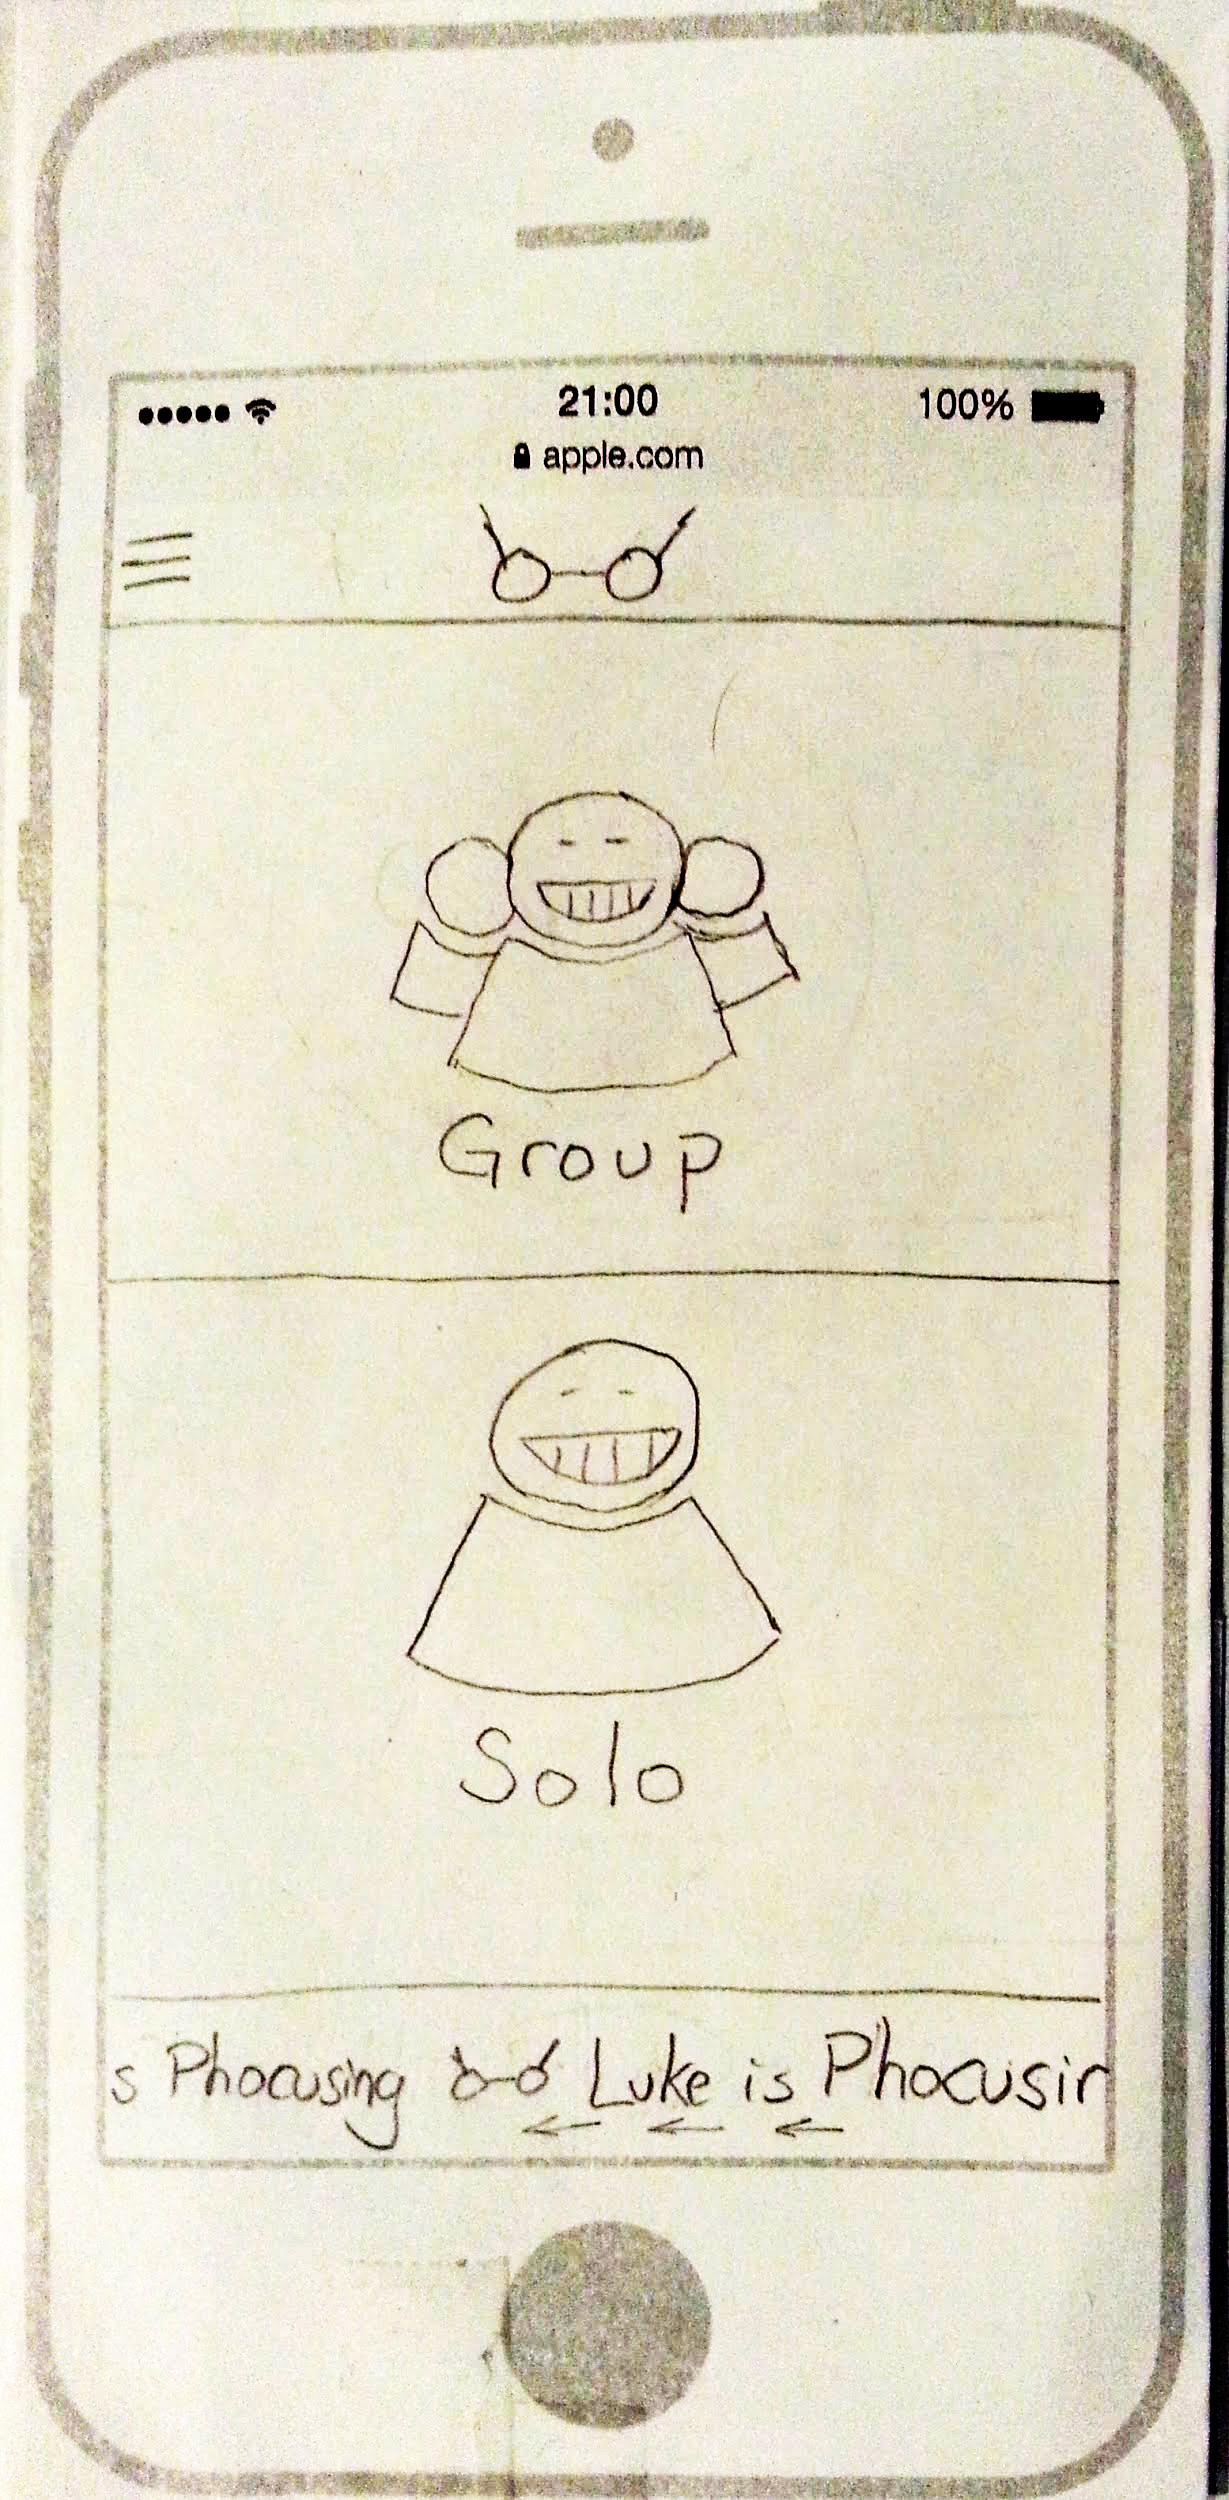 21:00
100%
apple.com
Group
Solo
s Phocusing Luke is Phocusin